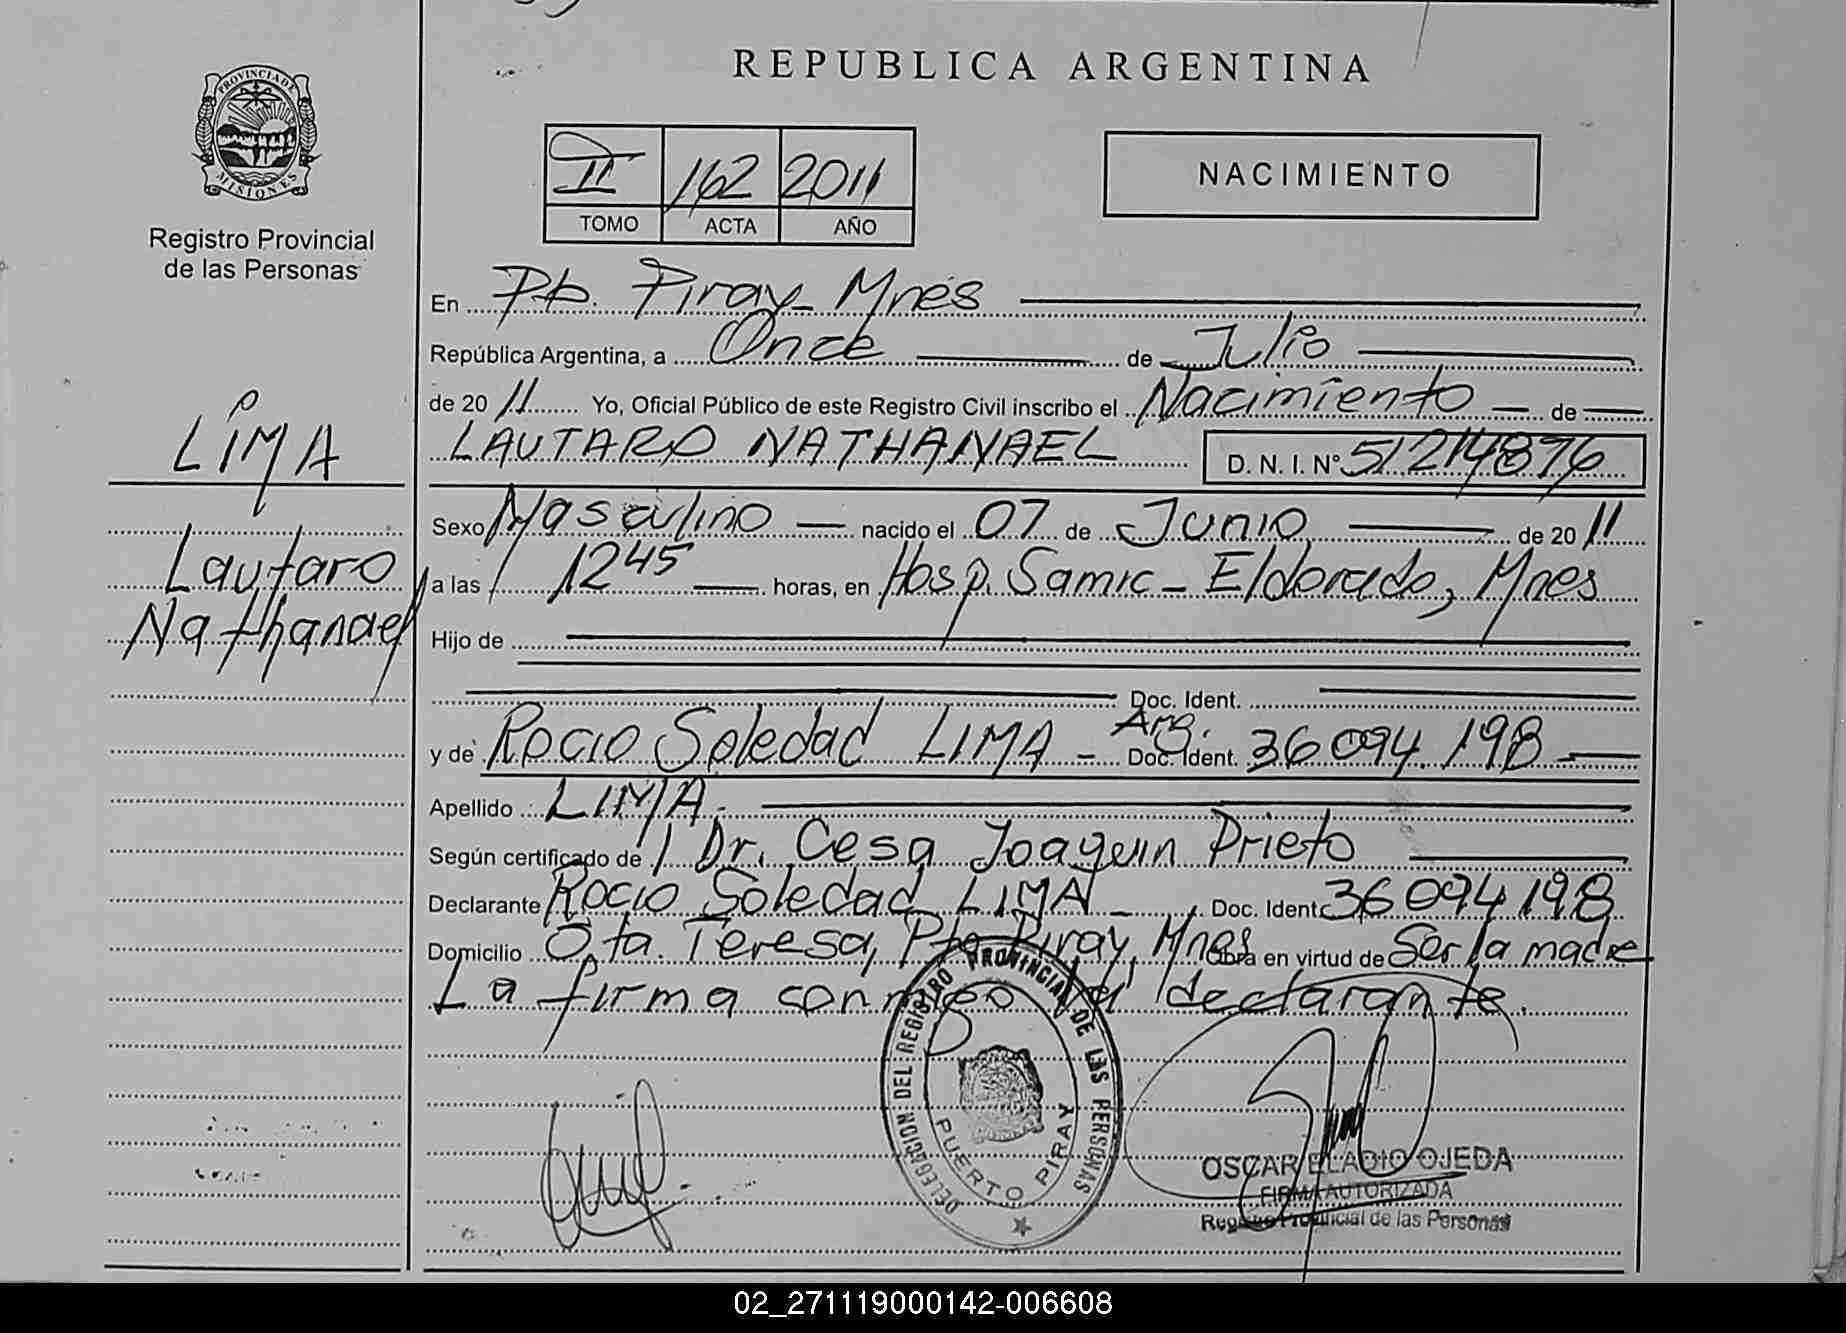 REPUBLICA ARGENTINA
PROVINCIA DE MISIONES
Registro Provincial
de las Personas
II 162 2011
TOMO ACTA AÑO
NACIMIENTO
En Pto. Piray - Mnes
República Argentina, a Once de Julio
de 2011 Yo, Oficial Público de este Registro Civil inscribo el Nacimiento de
LAUTARO NATHANAEL D. N. I. Nº 51214876
LIMA
Lautaro
Nathanael
Sexo Masculino nacido el 07 de Junio de 2011
a las 1245 horas, en Hosp. Samic - Eldorado, Mnes
Hijo de
Doc. Ident.
y de Rocio Soledad LIMA - Arg. Doc. Ident. 36094.198
Apellido LIMA.
Según certificado de Dr. Cesa Joaquin Prieto
Declarante Rocio Soledad LIMA - Doc. Ident. 36094198
Domicilio Qta. Teresa, Pto Piray, Mnes Obra en virtud de Ser la madre
La firma conmigo la declarante.
DELEGACION DEL REGISTRO PROVINCIAL DE LAS PERSONAS
PUERTO PIRAY
OSCAR ELADIO OJEDA
FIRMA AUTORIZADA
Registro Provincial de las Personas
02_271119000142-006608